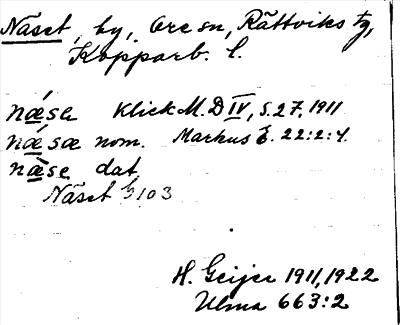 Näset, by, Ore sn, Rättviks tg,
Kopparb. l.
næ´sa Klick M. D IV, S. 27, 1911
næ´sæ nom. Markus E. 22:2:4.
næ`se dat.
Näset 3103
H. Geijer 1911, 1922
Ulma 663:2